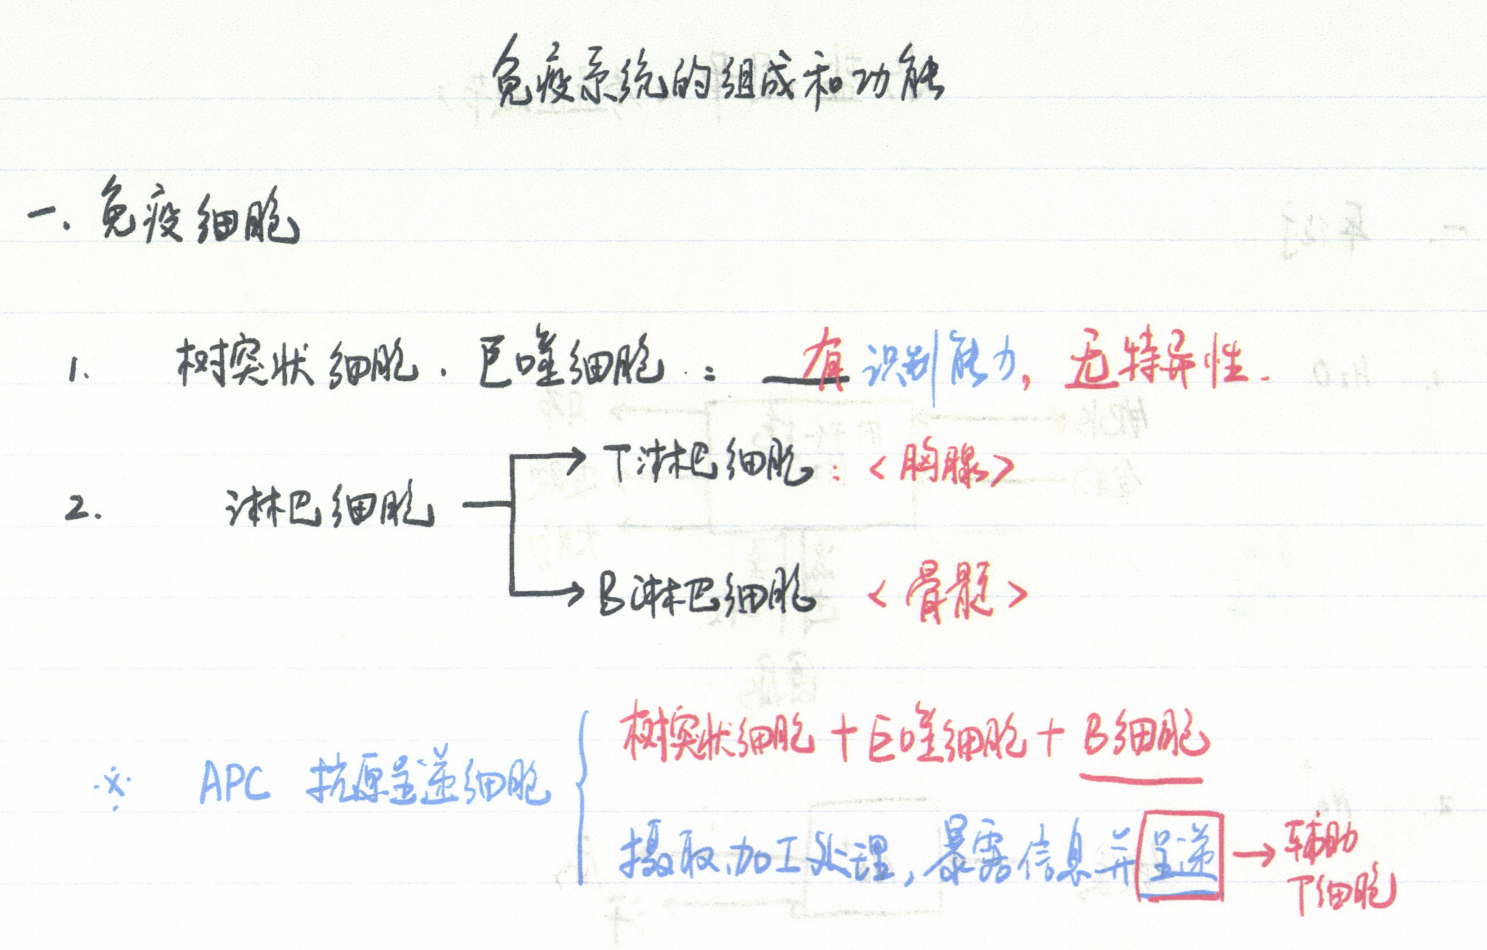 免疫系统的组成和功能
一. 免疫细胞
1. 树突状细胞.巨噬细胞: 有识别能力,无特异性.
2. 淋巴细胞
T淋巴细胞:<胸腺>
B淋巴细胞 <骨髓>
※ APC 抗原呈递细胞
树突状细胞+巨噬细胞+B细胞
摄取.加工处理,暴露信息并呈递→辅助
T细胞